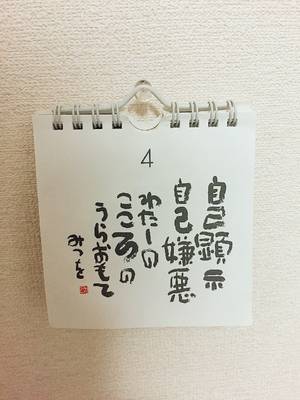 4
自己顕示
自己嫌悪
わたしの
こころの
うらおもて
みつを